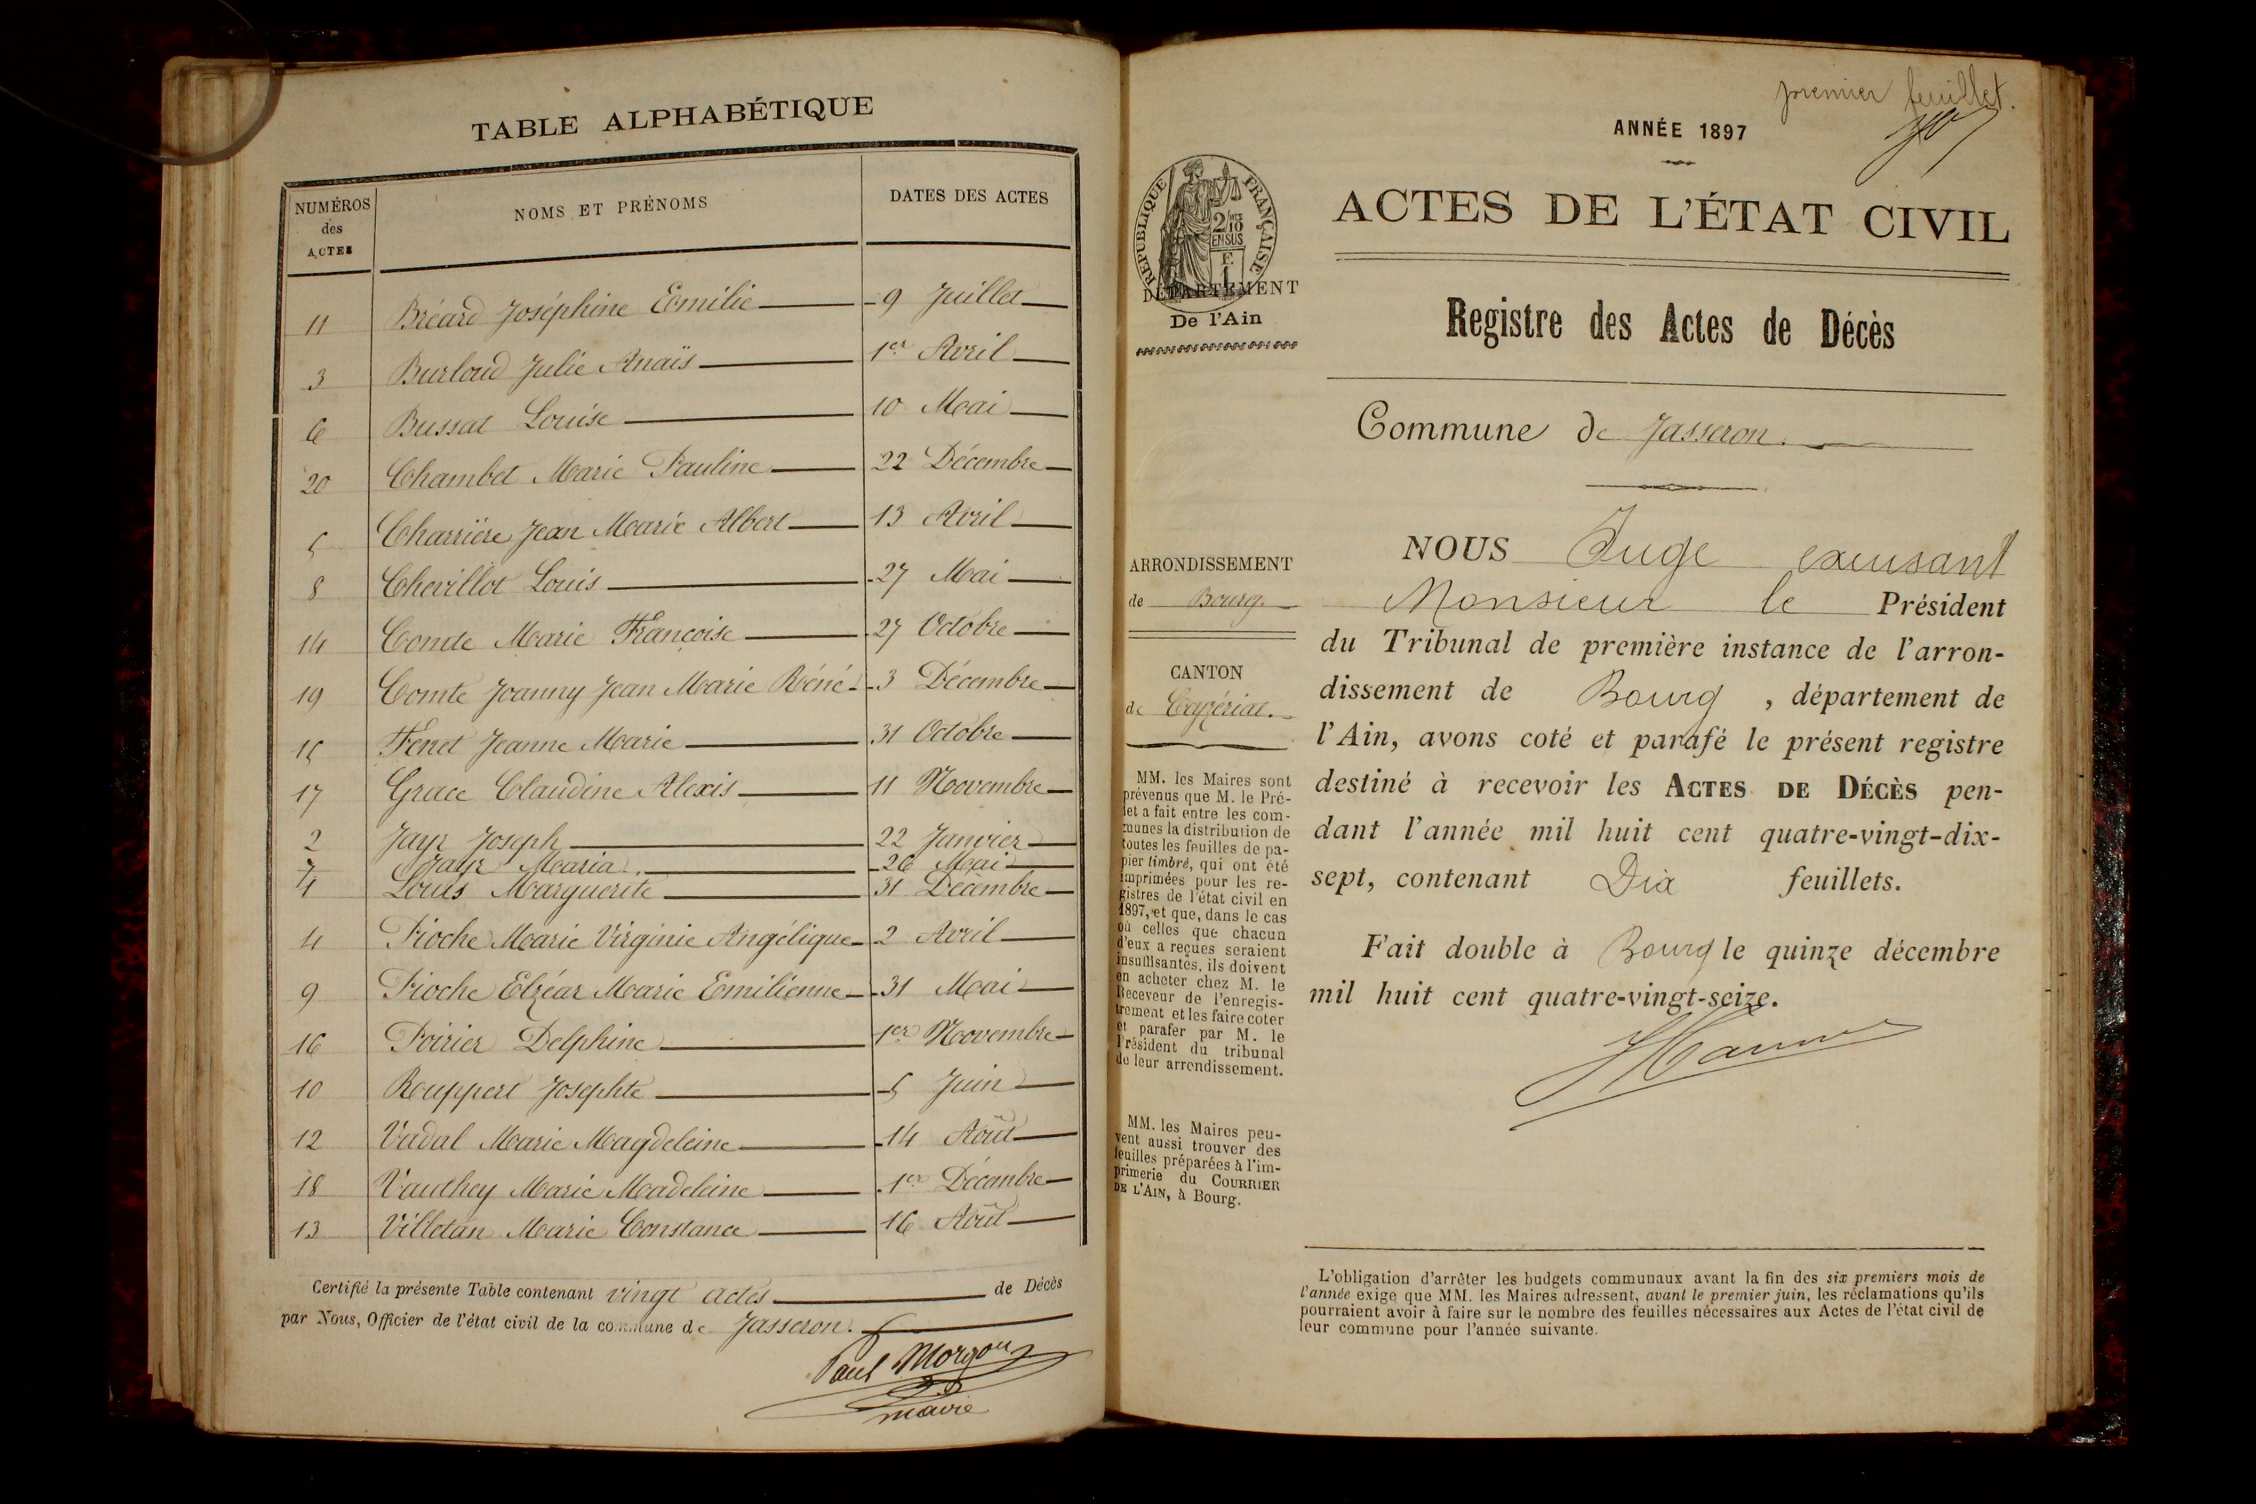 TABLE ALPHABÉTIQUE
NUMÉROS des ACTES
NOMS ET PRÉNOMS
DATES DES ACTES
11 Bréard Joséphine Emilie 9 Juillet
3 Burloud Julie Anaïs 1er Avril
6 Bussat Louise 10 Mai
20 Chambet Marie Pauline 22 Décembre
5 Charrière Jean Marie Albert 13 Avril
8 Chevillot Louis 27 Mai
14 Comte Marie Françoise 27 Octobre
19 Comte Joanny Jean Marie Réné 3 Décembre
15 Fenet Jeanne Marie 31 Octobre
17 Grace Claudine Alexis 11 Novembre
2 Jayr Joseph 22 Janvier
7 Jayr Maria 26 Mai
1 Louis Marguerite 31 Décembre
4 Pioche Marie Virginie Angélique 2 Avril
9 Pioche Elzéar Marie Emilienne 31 Mai
16 Poirier Delphine 1er Novembre
10 Ruppert Josephte 5 Juin
12 Vadal Marie Magdeleine 14 Août
18 Vauthey Marie Madeleine 1er Décembre
13 Villetan Marie Constance 16 Août
Certifié la présente Table contenant vingt actes de Décès
par Nous, Officier de l'état civil de la commune de Jasseron.
Paul Morgon
maire
premier feuillet.
ANNÉE 1897
RÉPUBLIQUE FRANÇAISE
2/10 EN SUS
ACTES DE L'ÉTAT CIVIL
DÉPARTEMENT
De l'Ain
Registre des Actes de Décès
Commune de Jasseron.
ARRONDISSEMENT
de Bourg.
CANTON
de Ceyzériat.
MM. les Maires sont
prévenus que M. le Pré-
fet a fait entre les com-
munes la distribution de
toutes les feuilles de pa-
pier timbré, qui ont été
imprimées pour les re-
gistres de l'état civil en
1897, et que, dans le cas
où celles que chacun
d'eux a reçues seraient
insuffisantes, ils doivent
en acheter chez M. le
Receveur de l'enregis-
trement et les faire coter
et parafer par M. le
Président du tribunal
de leur arrondissement.
MM. les Maires peu-
vent aussi trouver des
feuilles préparées à l'im-
primerie du COURRIER
DE L'AIN, à Bourg.
NOUS Juge excusant
Monsieur le Président
du Tribunal de première instance de l'arron-
dissement de Bourg, département de
l'Ain, avons coté et parafé le présent registre
destiné à recevoir les ACTES DE DÉCÈS pen-
dant l'année mil huit cent quatre-vingt-dix-
sept, contenant Dix feuillets.
Fait double à Bourg le quinze décembre
mil huit cent quatre-vingt-seize.
L'obligation d'arrêter les budgets communaux avant la fin des six premiers mois de
l'année exige que MM. les Maires adressent, avant le premier juin, les réclamations qu'ils
pourraient avoir à faire sur le nombre des feuilles nécessaires aux Actes de l'état civil de
leur commune pour l'année suivante.